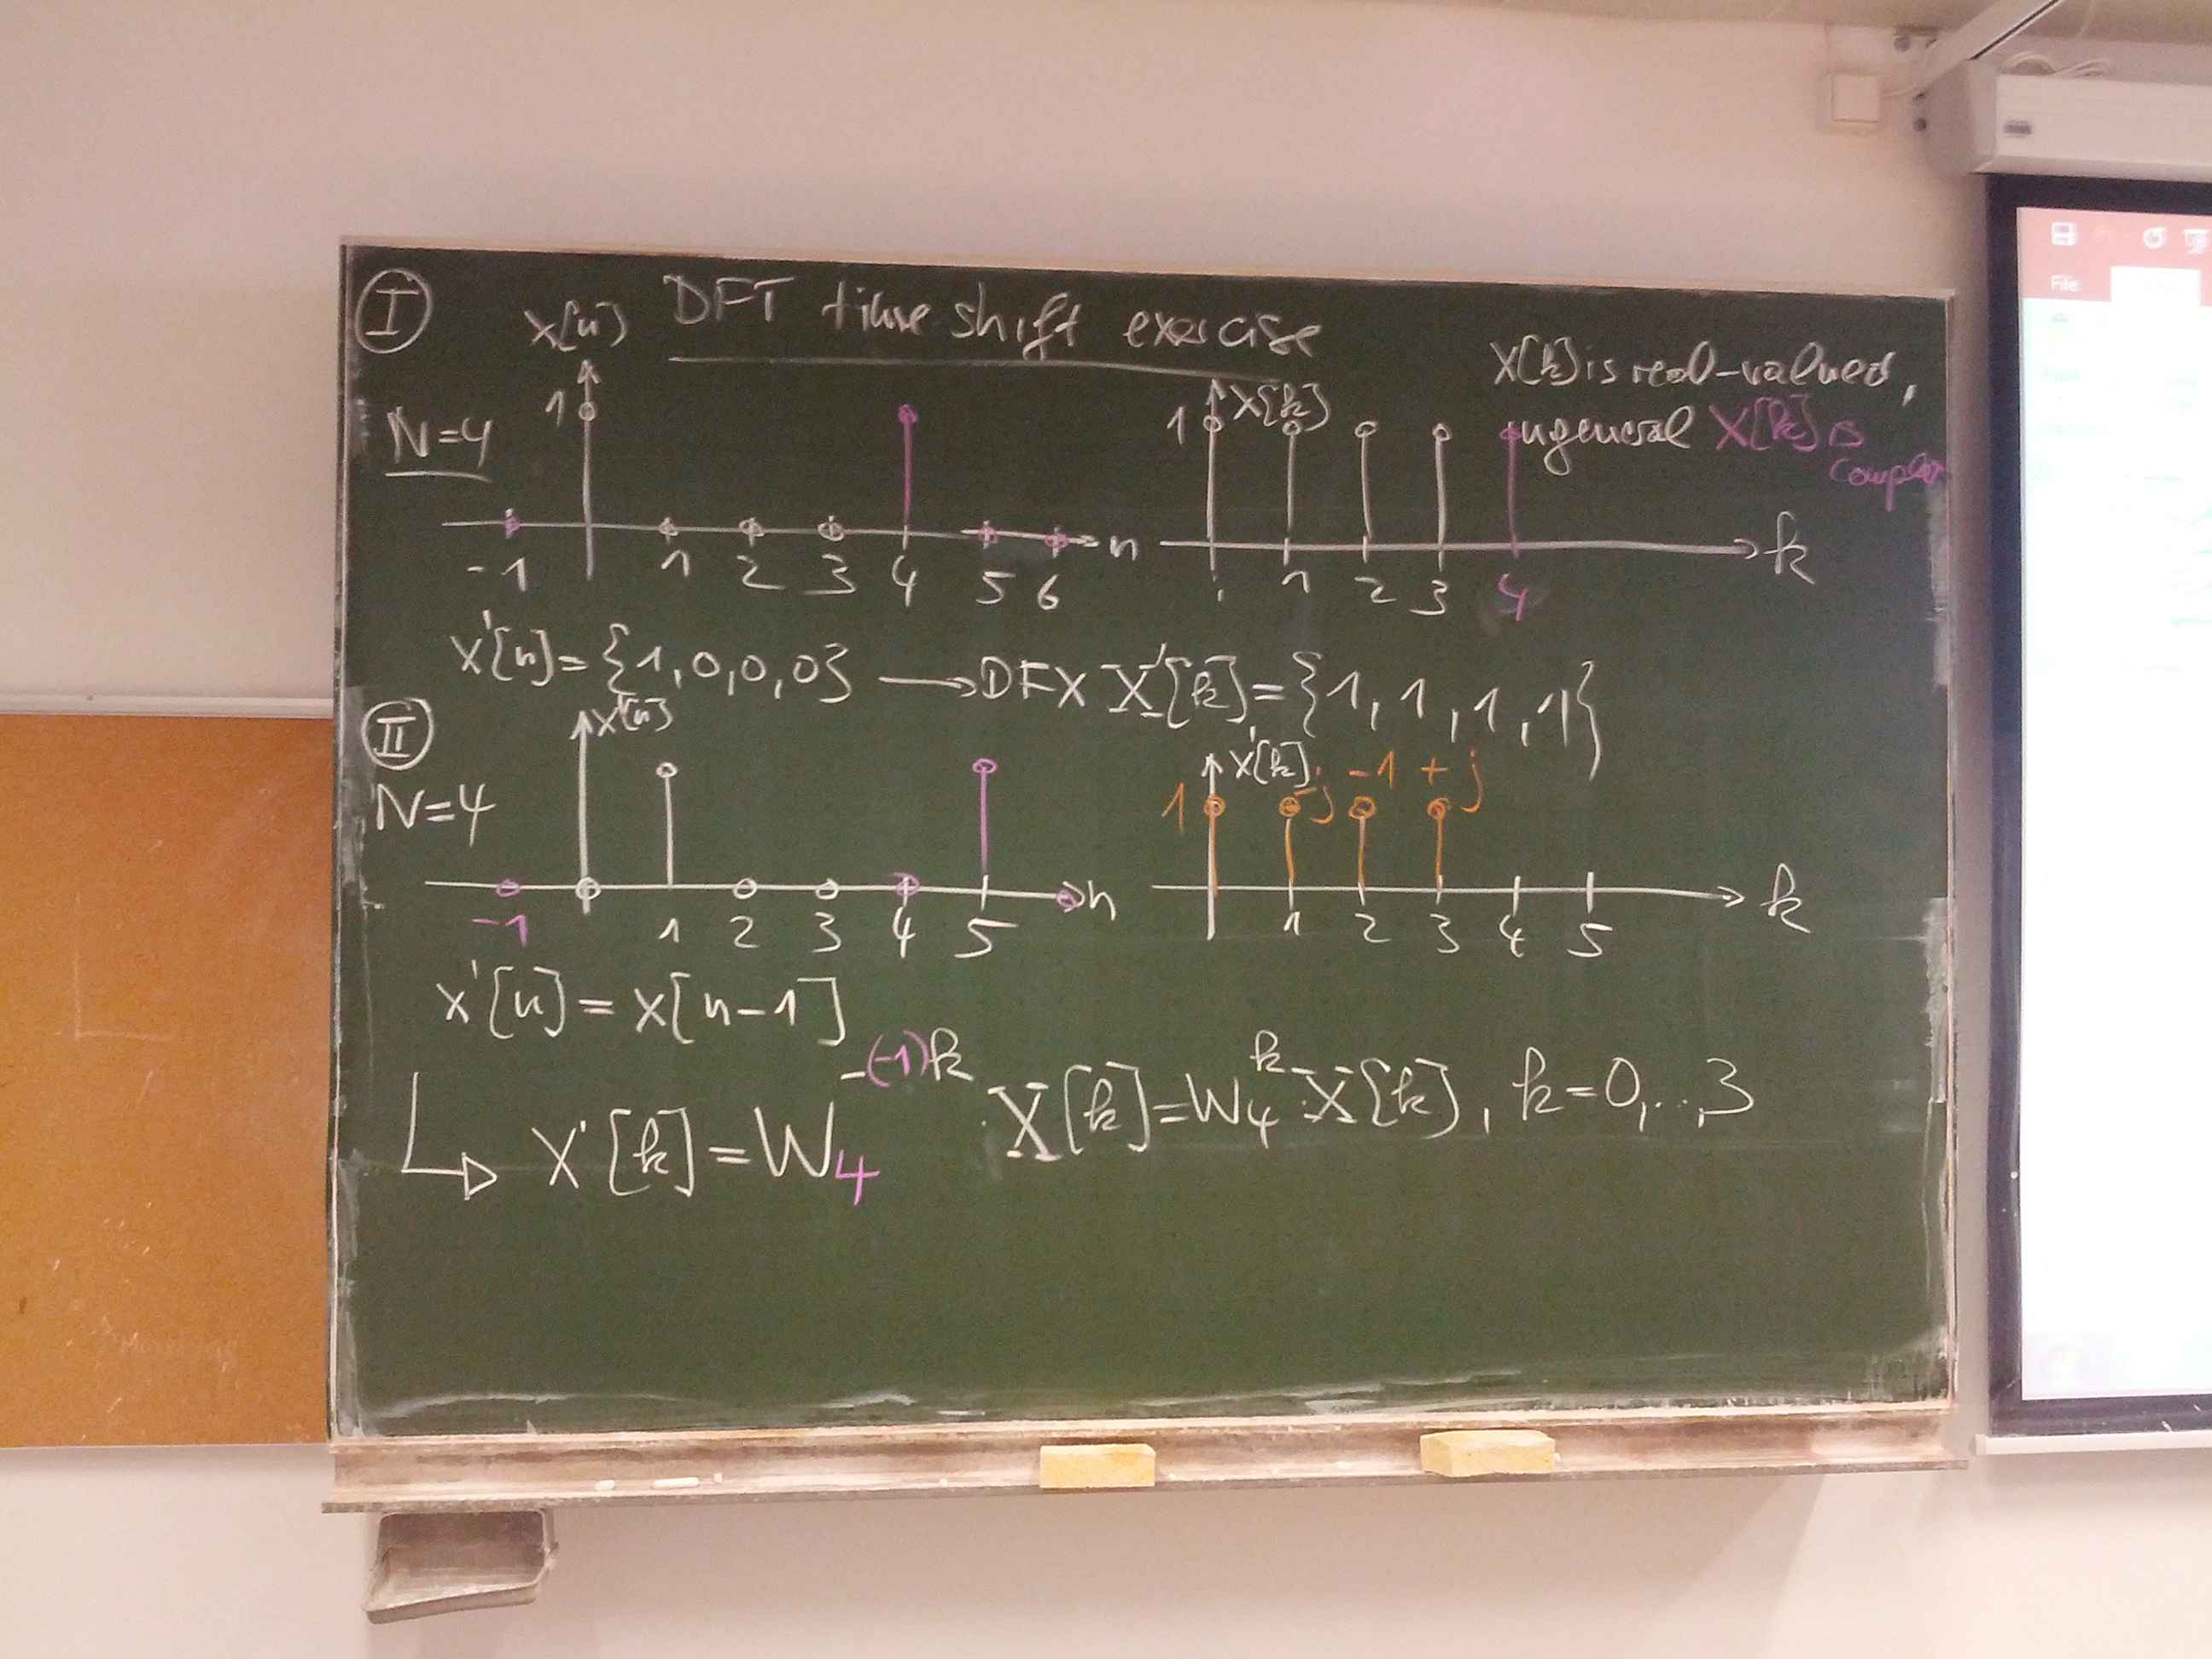 I
DFT time shift exercise
x[n]
N=4
1
-1 1 2 3 4 5 6 n
X[k]
1
1 2 3 4 k
X[k] is real-valued,
ingeneral X[k] is
complex
x'[n]={1,0,0,0} → DFX X'[k]={1,1,1,1}
II
N=4
x'[n]
-1 1 2 3 4 5 n
X'[k]
1 -j -1 +j
1 2 3 4 5 k
x'[n]=x[n-1]
X'[k]=W₄^-(-1)k · X[k]=W₄^k · X[k], k=0,..,3
File